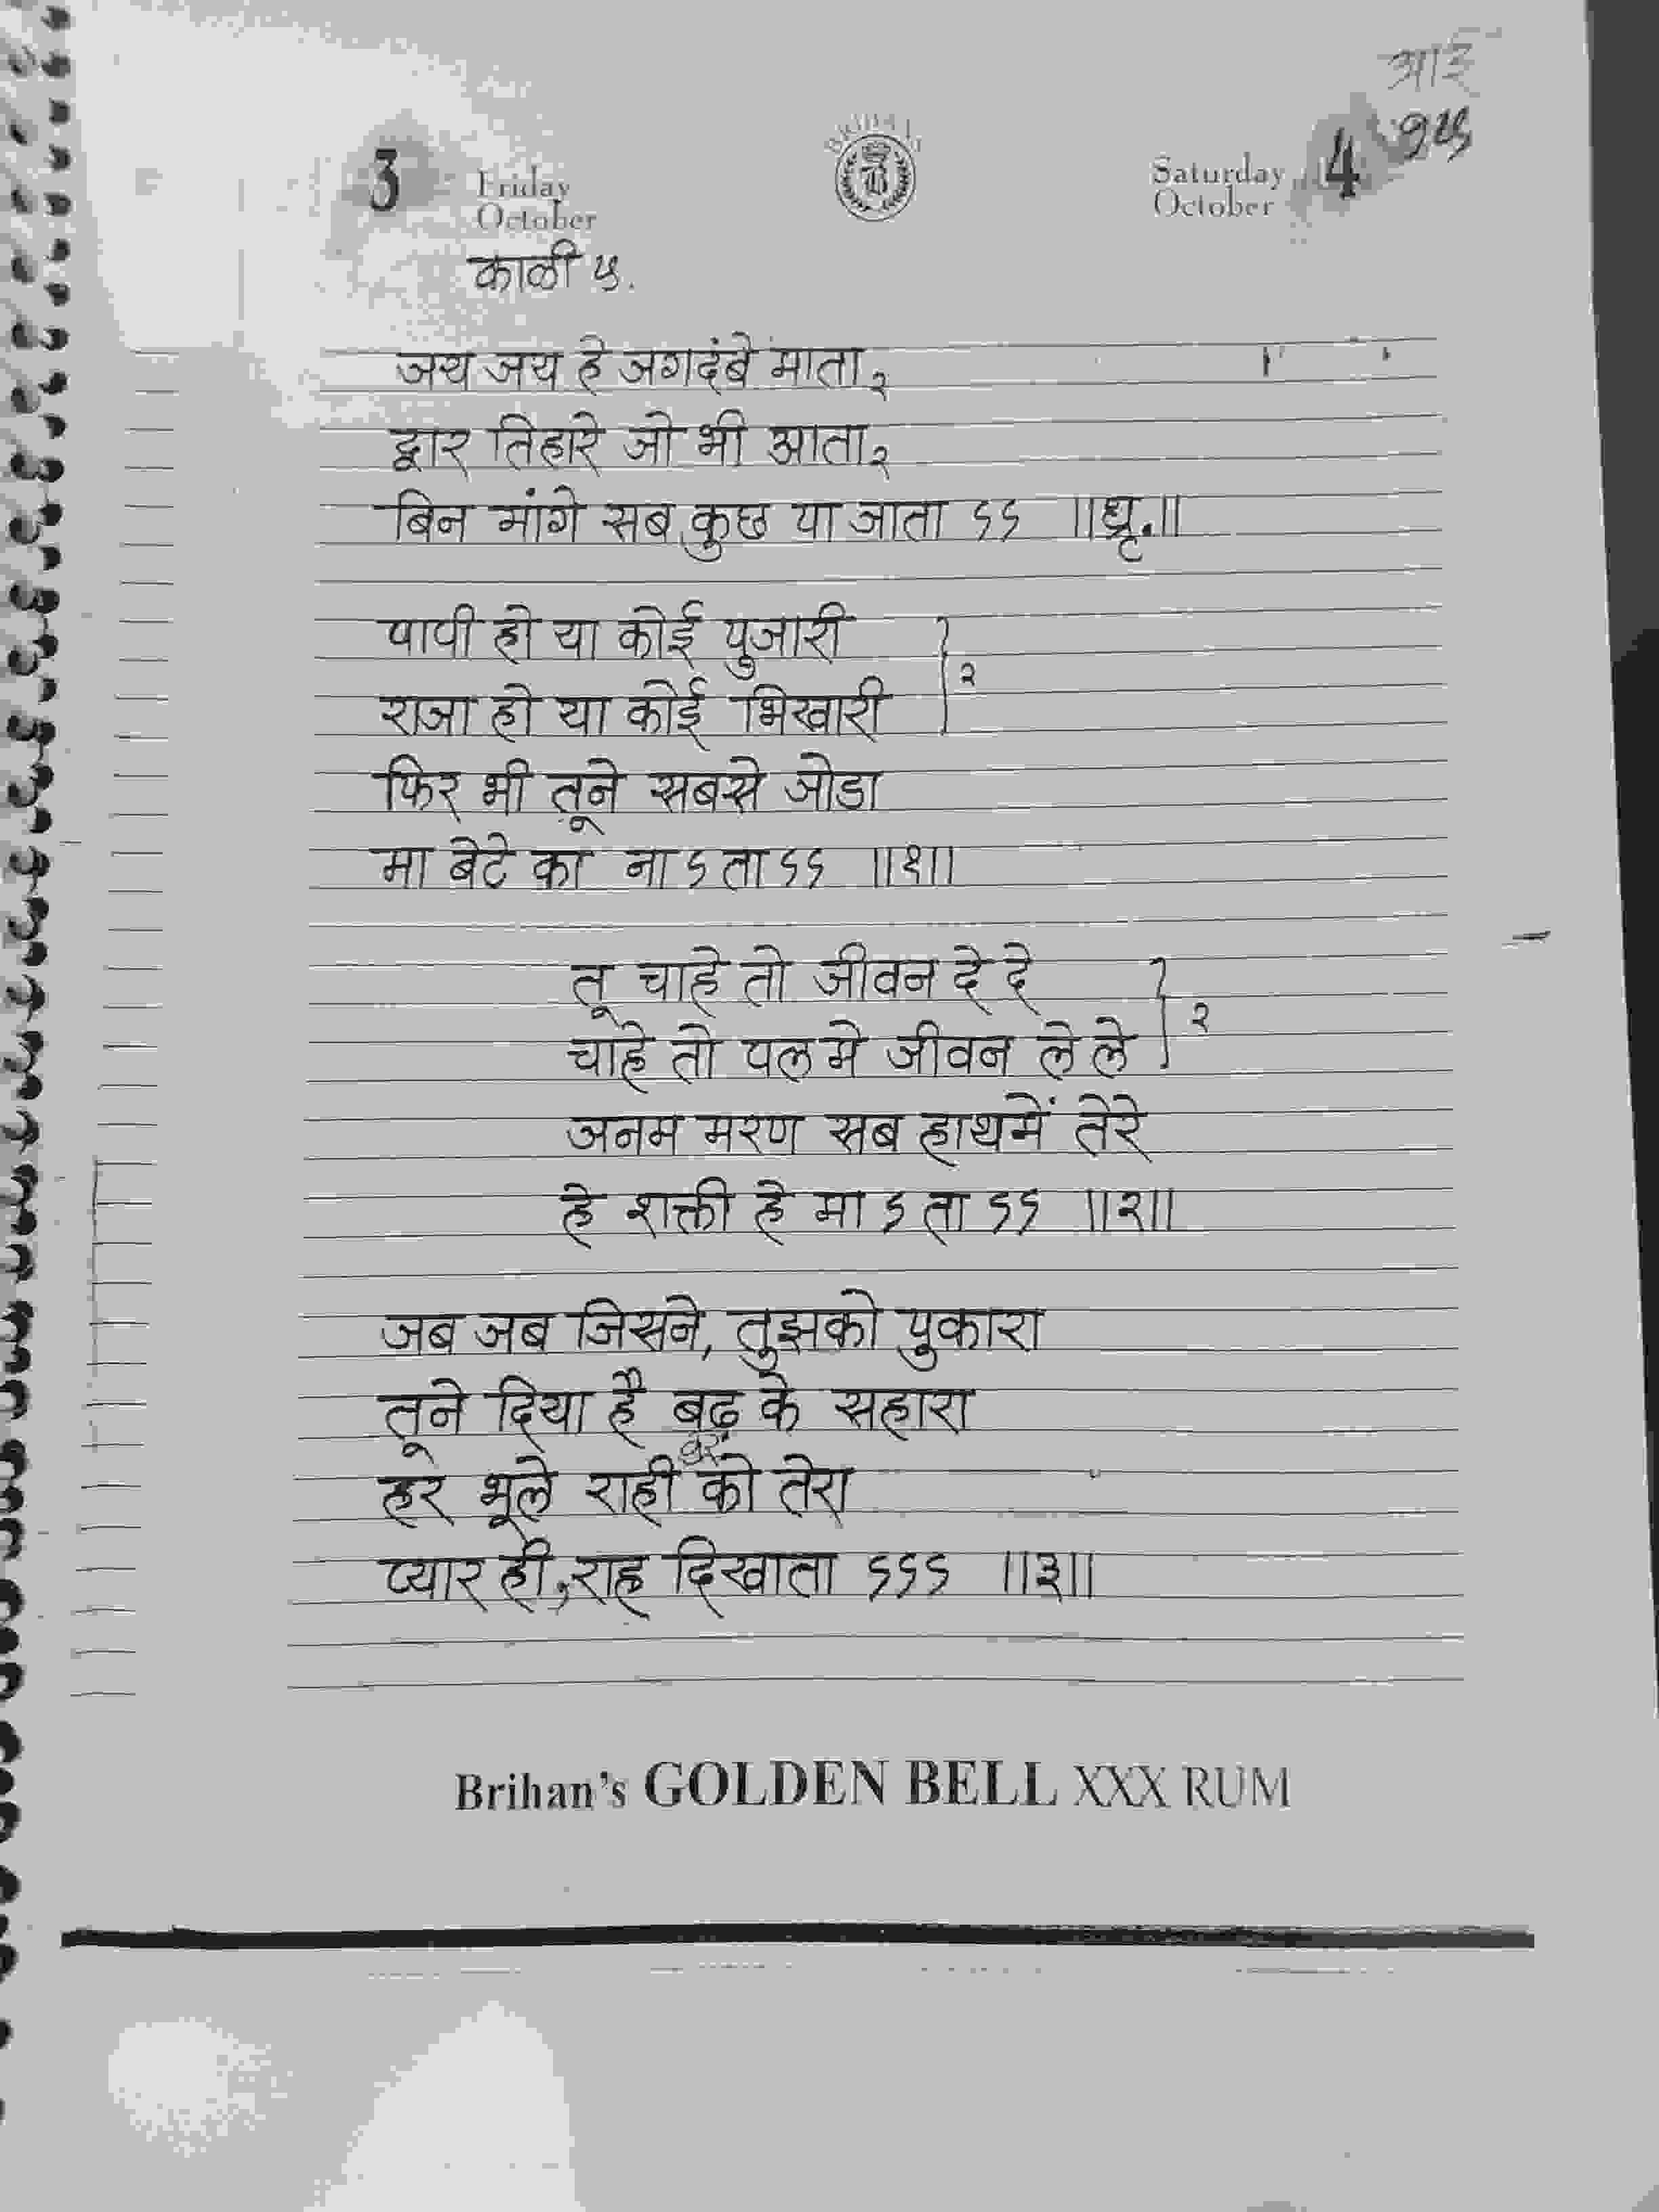 आई
१५
3 Friday October
Saturday October 4
काळी ५.
जय जय हे जगदंबे माता २
द्वार तिहारे जो भी आता २
बिन मांगे सब कुछ पा जाता ऽऽ ॥धृ.॥
पापी हो या कोई पुजारी
राजा हो या कोई भिखारी } २
फिर भी तूने सबसे जोडा
मा बेटे का ना ऽ ता ऽऽ ॥१॥
तू चाहे तो जीवन दे दे
चाहे तो पल मे जीवन ले ले } २
जनम मरण सब हाथमें तेरे
हे शक्ती हे मा ऽ ता ऽऽ ॥२॥
जब जब जिसने, तुझको पुकारा
तूने दिया है बढ़ के सहारा
हर भूले राही को तेरा
प्यार ही, राह दिखाता ऽऽऽ ॥३॥
Brihan's GOLDEN BELL XXX RUM